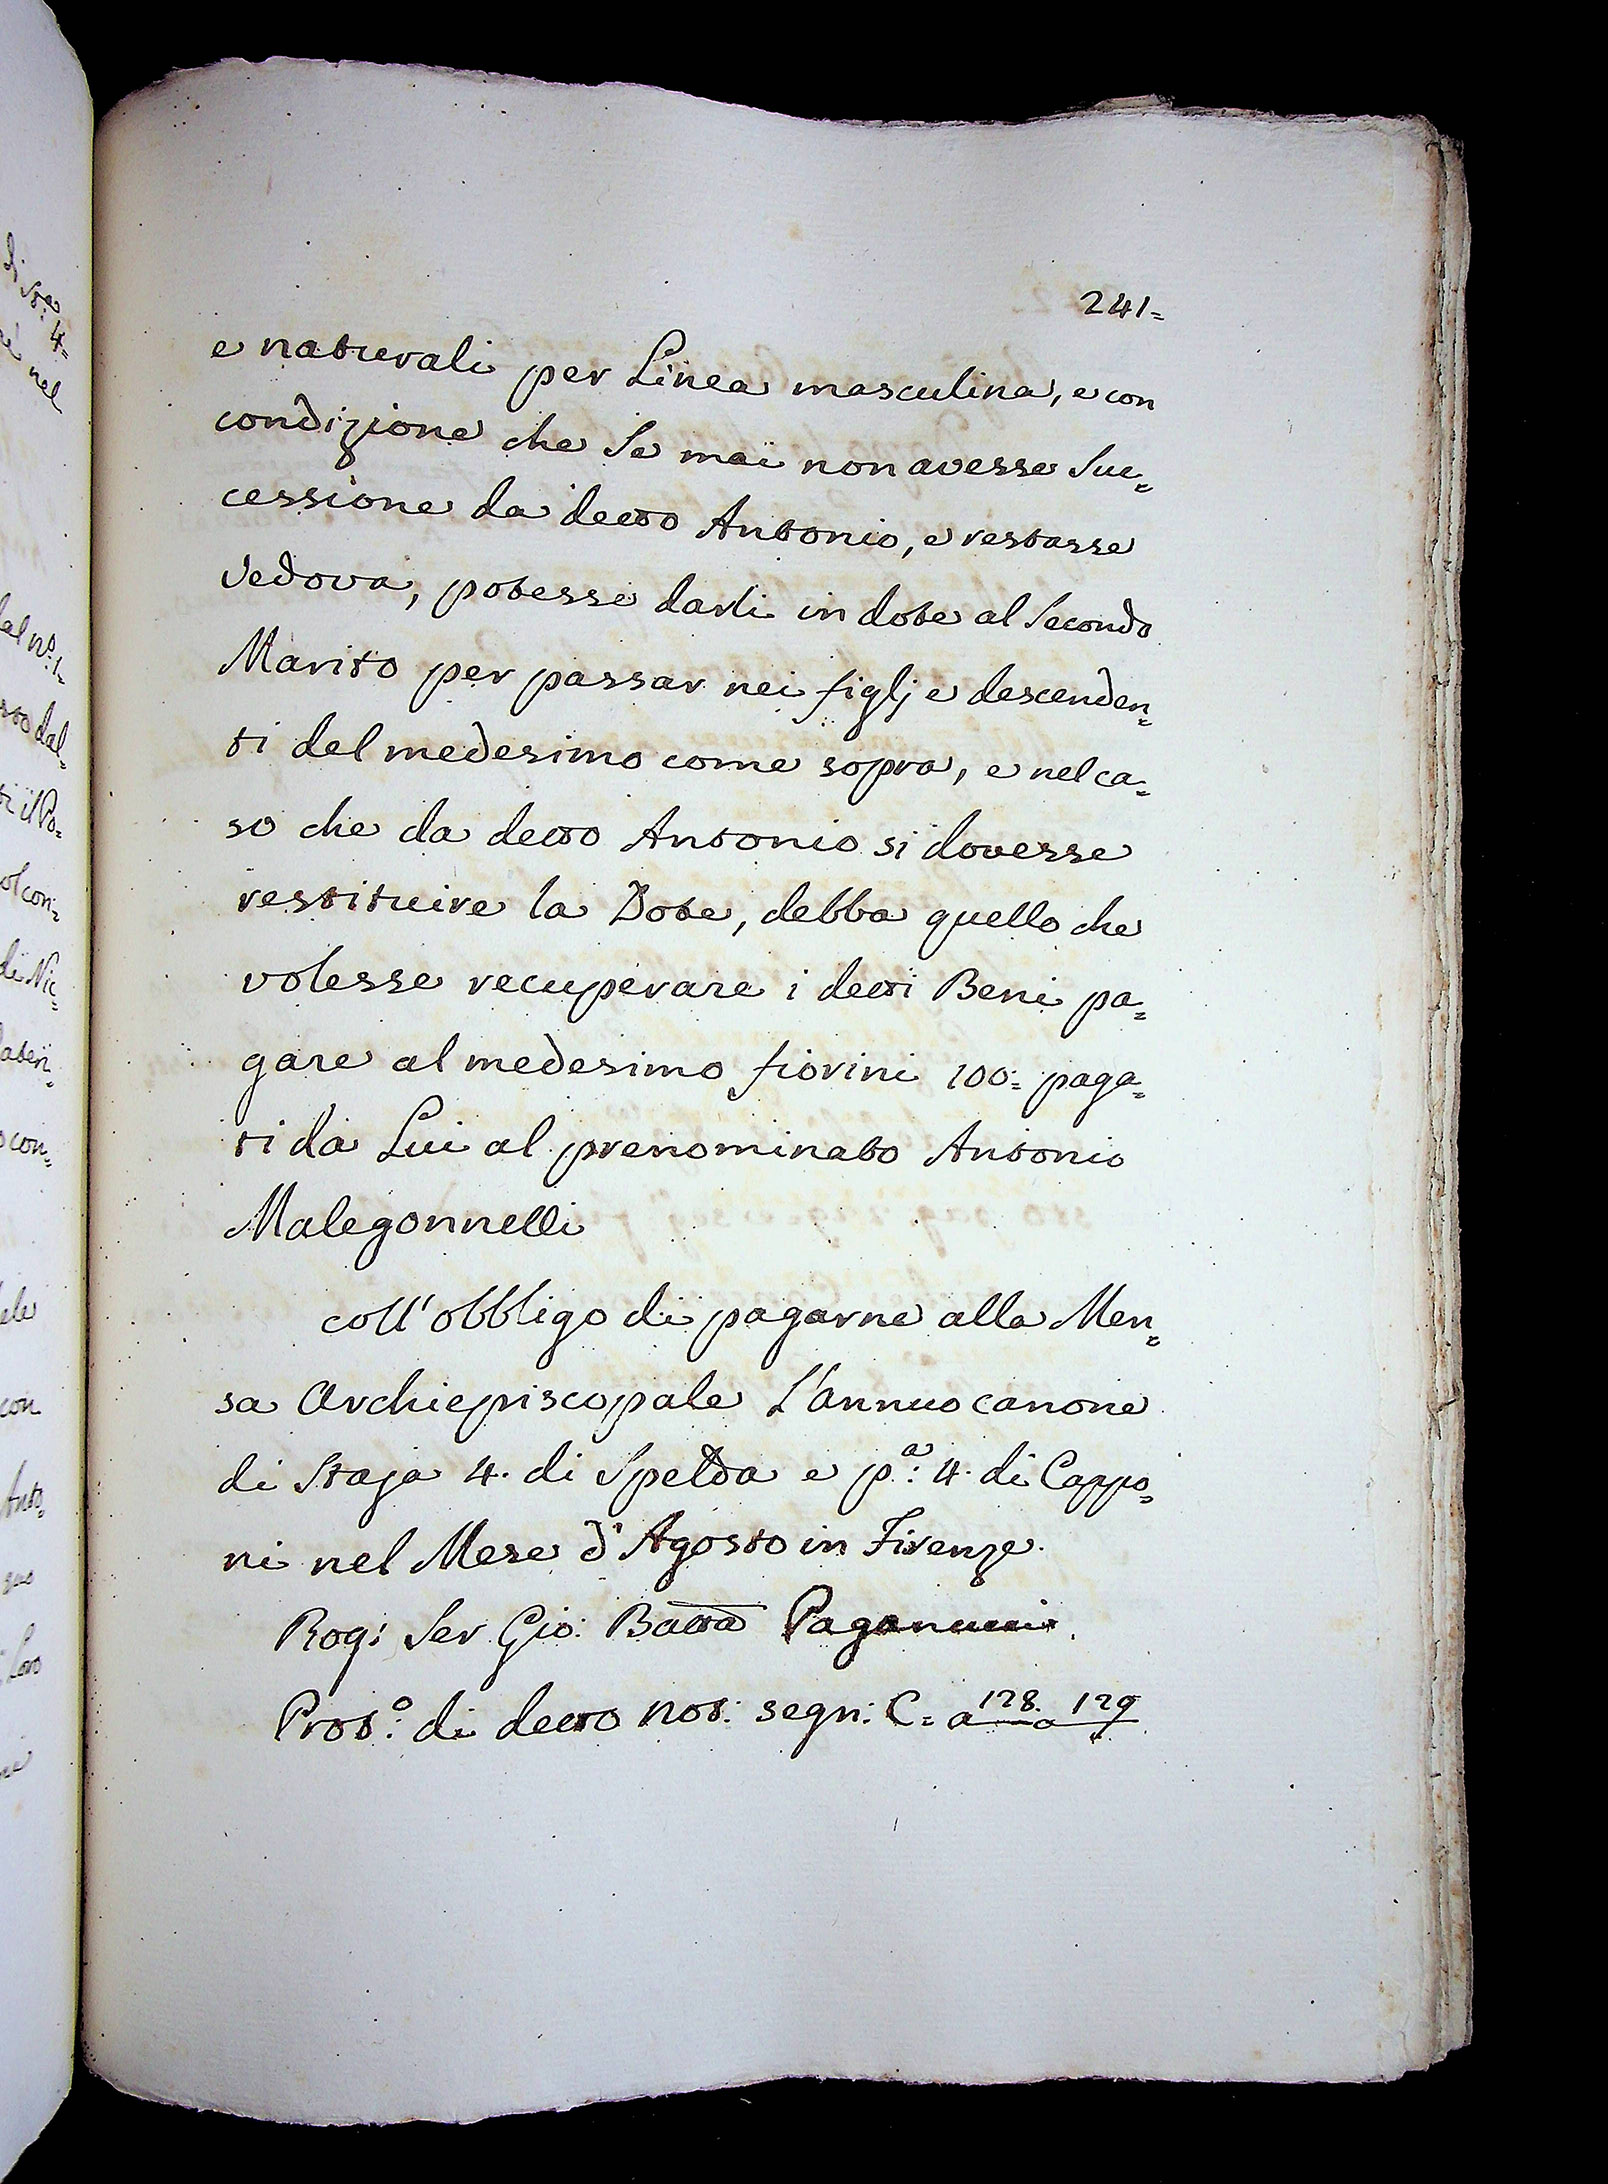 241=
e naturali per Linea masculina, e con
condizione che Se mai non avesse Suc=
cessione da detto Antonio, e restasse
Vedova, potesse darli in dote al Secondo
Marito per passar nei figlj e descenden=
ti del medesimo come sopra, e nel ca=
so che da detto Antonio si dovesse
restituire la Dote, debba quello che
volesse recuperare i detti Beni pa=
gare al medesimo fiorini 100= paga=
ti da Lui al prenominato Antonio
Malegonnelli
coll' obbligo di pagarne alla Men=
sa Archiepiscopale L'annuo canone
di Staja 4. di Spelda e pª: 4. di Cappo=
ni nel Mese d'Agosto in Firenze.
Rog: Ser Gio: Batta Paganucci.
Protº: di detto not: segn: C= a 128. a 129